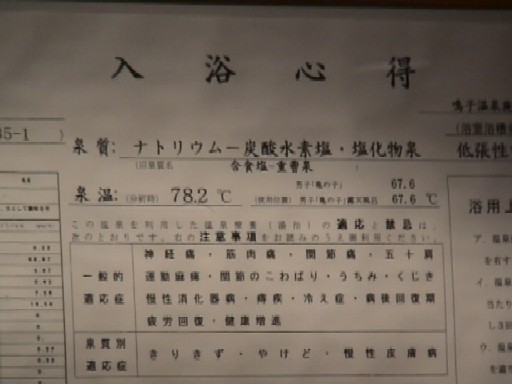 入浴心得
鳴子温泉
35-1 )
(浴室浴槽
泉質: ナトリウム－炭酸水素塩・塩化物泉 低張性
(旧泉質名 含食塩-重曹泉
男子「亀の子」 67.6
泉温: (分析時) 78.2 ℃ (使用位置) 男子「亀の子」露天風呂 67.6 ℃
浴用上
この温泉を利用した温泉療養(湯治)の適応と禁忌は、
次のとおりです。右の注意事項をお読みのうえ御利用ください。
一般的
適応症
神経痛・筋肉痛・関節痛・五十肩
運動麻痺・関節のこわばり・うちみ・くじき
慢性消化器病・痔疾・冷え症・病後回復期
疲労回復・健康増進
泉質別
適応症
きりきず・やけど・慢性皮膚病
ア．温泉
を有す
イ．温泉
当たり
し3回
ウ．温